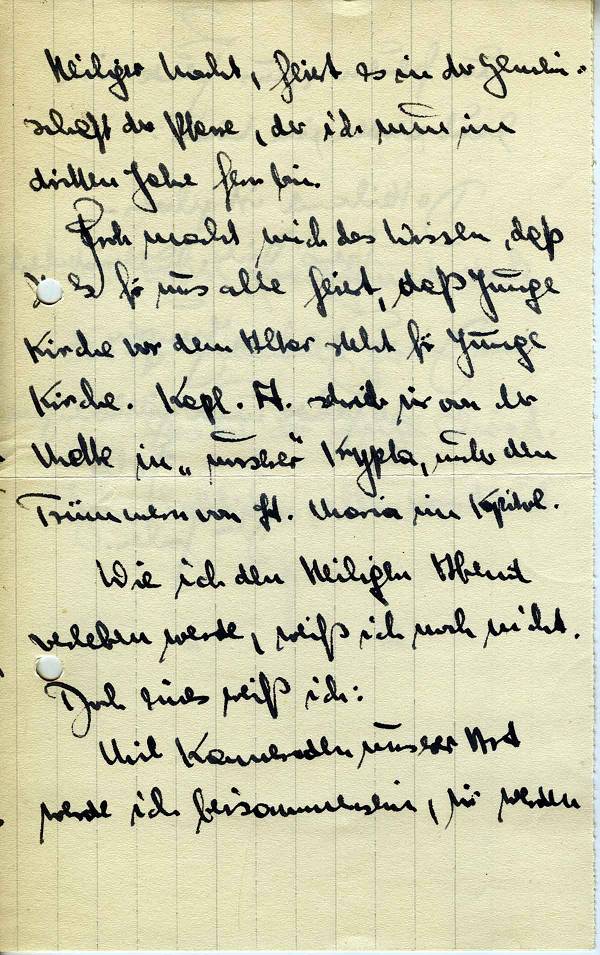 Heiliger Nacht, feiert Ihr in der Gemein-
schaft der Pfarre, der ich nun im
dritten Jahre fern bin.
Froh macht mich das Wissen, daß
Ihr für uns alle feiert, daß Junge
Kirche vor dem Altar steht für Junge
Kirche. Kapl. A. schrieb mir von der
Mette in „unserer" Krypta, unter den
Trümmern von St. Maria im Kapitol.
Wie ich den Heiligen Abend
verleben werde, weiß ich noch nicht.
Doch eines weiß ich:
Mit Kameraden unserer Art
werde ich beisammensein, wir werden